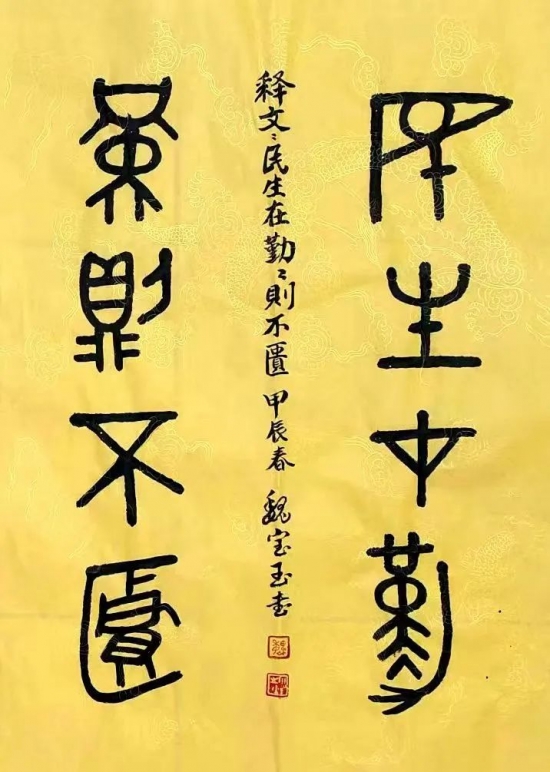 民生在勤
勤則不匱
释文：民生在勤〻則不匱 甲辰春 魏宝玉书